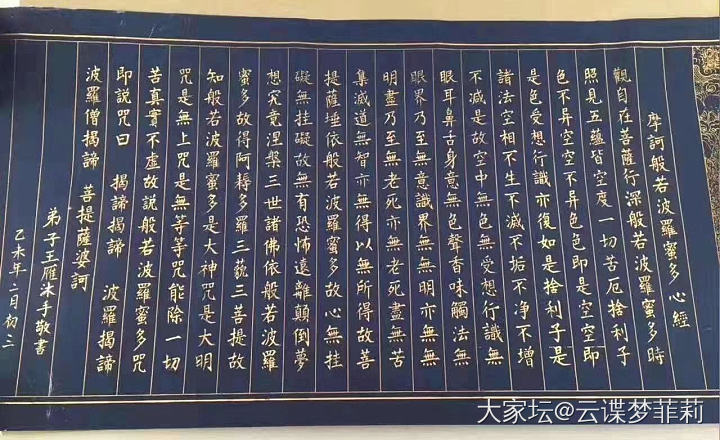 摩訶般若波羅蜜多心經
觀自在菩薩行深般若波羅蜜多時
照見五蘊皆空度一切苦厄捨利子
色不异空空不异色色即是空空即
是色受想行識亦復如是捨利子是
諸法空相不生不滅不垢不净不增
不減是故空中無色無受想行識無
眼耳鼻舌身意無色聲香味觸法無
眼界乃至無意識界無無明亦無無
明盡乃至無老死亦無老死盡無苦
集滅道無智亦無得以無所得故菩
提薩埵依般若波羅蜜多故心無挂
礙無挂礙故無有恐怖遠離顛倒夢
想究竟涅槃三世諸佛依般若波羅
蜜多故得阿耨多羅三藐三菩提故
知般若波羅蜜多是大神咒是大明
咒是無上咒是無等等咒能除一切
苦真實不虛故説般若波羅蜜多咒
即説咒曰 揭諦揭諦 波羅揭諦
波羅僧揭諦 菩提薩婆訶
弟子王雁沐手敬書
乙未年二月初三
大家坛@云谍梦菲莉